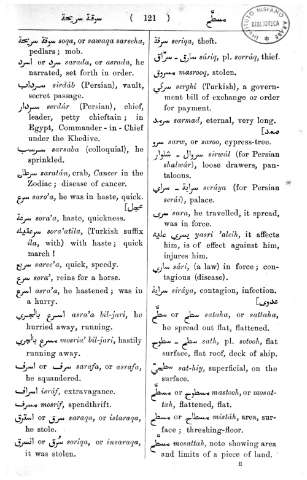 سوقة سريحة ( 121 ) مسطّح
سوقة سريحة soqa, or sawaqa sareeha,
pedlars; mob.
سرد or أسرد sarada, or asrada, he
narrated, set forth in order.
سرداب sirdáb (Persian), vault,
secret passage.
سردار serdár (Persian), chief,
leader, petty chieftain; in
Egypt, Commander-in-Chief
under the Khedive.
sarsaba (colloquial), he
sprinkled.
سرطان saratán, crab, Cancer in the
Zodiac; disease of cancer.
سرع sara'a, he was in haste, quick.
[عجل
سرعة sora'a, haste, quickness.
sora'atila, (Turkish suffix
ila, with) with haste; quick
march!
سريع saree'a, quick, speedy.
سرع sora', reins for a horse.
أسرع asra'a, he hastened; was in
a hurry.
أسرع بالجري asra'a bil-jari, he
hurried away, running.
مسرع بالجري mosria' bil-jari, hastily
running away.
سرف or أسرف sarafa, or asrafa,
he squandered.
إسراف isráf, extravagance.
مسرف mosrif, spendthrift.
سرق or استرق saraqa, or istaraqa,
he stole.
سُرق or انسرق soriqa, or insaraqa,
it was stolen.
سرقة seriqa, theft.
سارق ــ سرّاق sáriq, pl. sorráq, thief.
مسروق masrooq, stolen.
سركي serghi (Turkish), a govern-
ment bill of exchange or order
for payment.
سرمد sarmad, eternal, very long.
سرو sarw, or saroo, cypress-tree.
سروال ــ شلوار sirwál (for Persian
shalwár), loose drawers, pan-
taloons.
سراية ــ سراي seráya (for Persian
serái), palace.
سرى sara, he travelled, it spread,
was in force.
يسري عليه yasri 'aleih, it affects
him, is of effect against him,
injures him.
ساري sári, (a law) in force; con-
tagious (disease).
سراية siráya, contagion, infection.
[عدوى
سطح or سطّح sataha, or sattaha,
he spread out flat, flattened.
سطح ــ سطوح sath, pl. sotooh, flat
surface, flat roof, deck of ship.
سطحي sat-hiy, superficial, on the
surface.
مسطوح or مسطّح mastooh, or mosat-
tah, flattened, flat.
مسطح mistáh, area, sur-
face; threshing-floor.
مسطّح mosattah, note showing area
and limits of a piece of land.